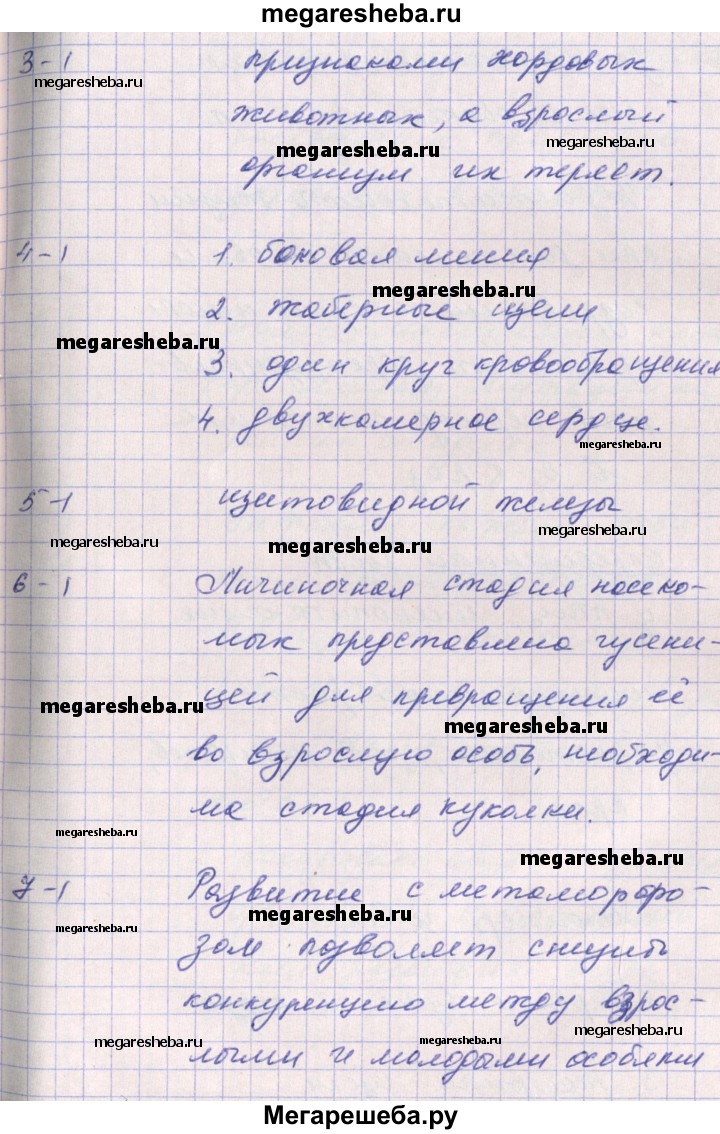 megaresheba.ru
3-1 признаками хордовых
megaresheba.ru
животных, а взрослый
megaresheba.ru
megaresheba.ru
организм их теряет.
4-1 1. боковая линия
megaresheba.ru
2. жаберные щели
megaresheba.ru
3. один круг кровообращения
4. двухкамерное сердце.
megaresheba.ru
5-1 щитовидной железы
megaresheba.ru
megaresheba.ru
megaresheba.ru
6-1 Личиночная стадия насеко-
мых представлена гусени-
цей для превращения её
megaresheba.ru
megaresheba.ru
во взрослую особь, необходи-
ма стадия куколки.
megaresheba.ru
megaresheba.ru
7-1 Развитие с метаморфо-
megaresheba.ru
megaresheba.ru
зом позволяет снизить
конкуренцию между взрос-
megaresheba.ru
megaresheba.ru
megaresheba.ru
лыми и молодами особями
Мегарешеба.ру